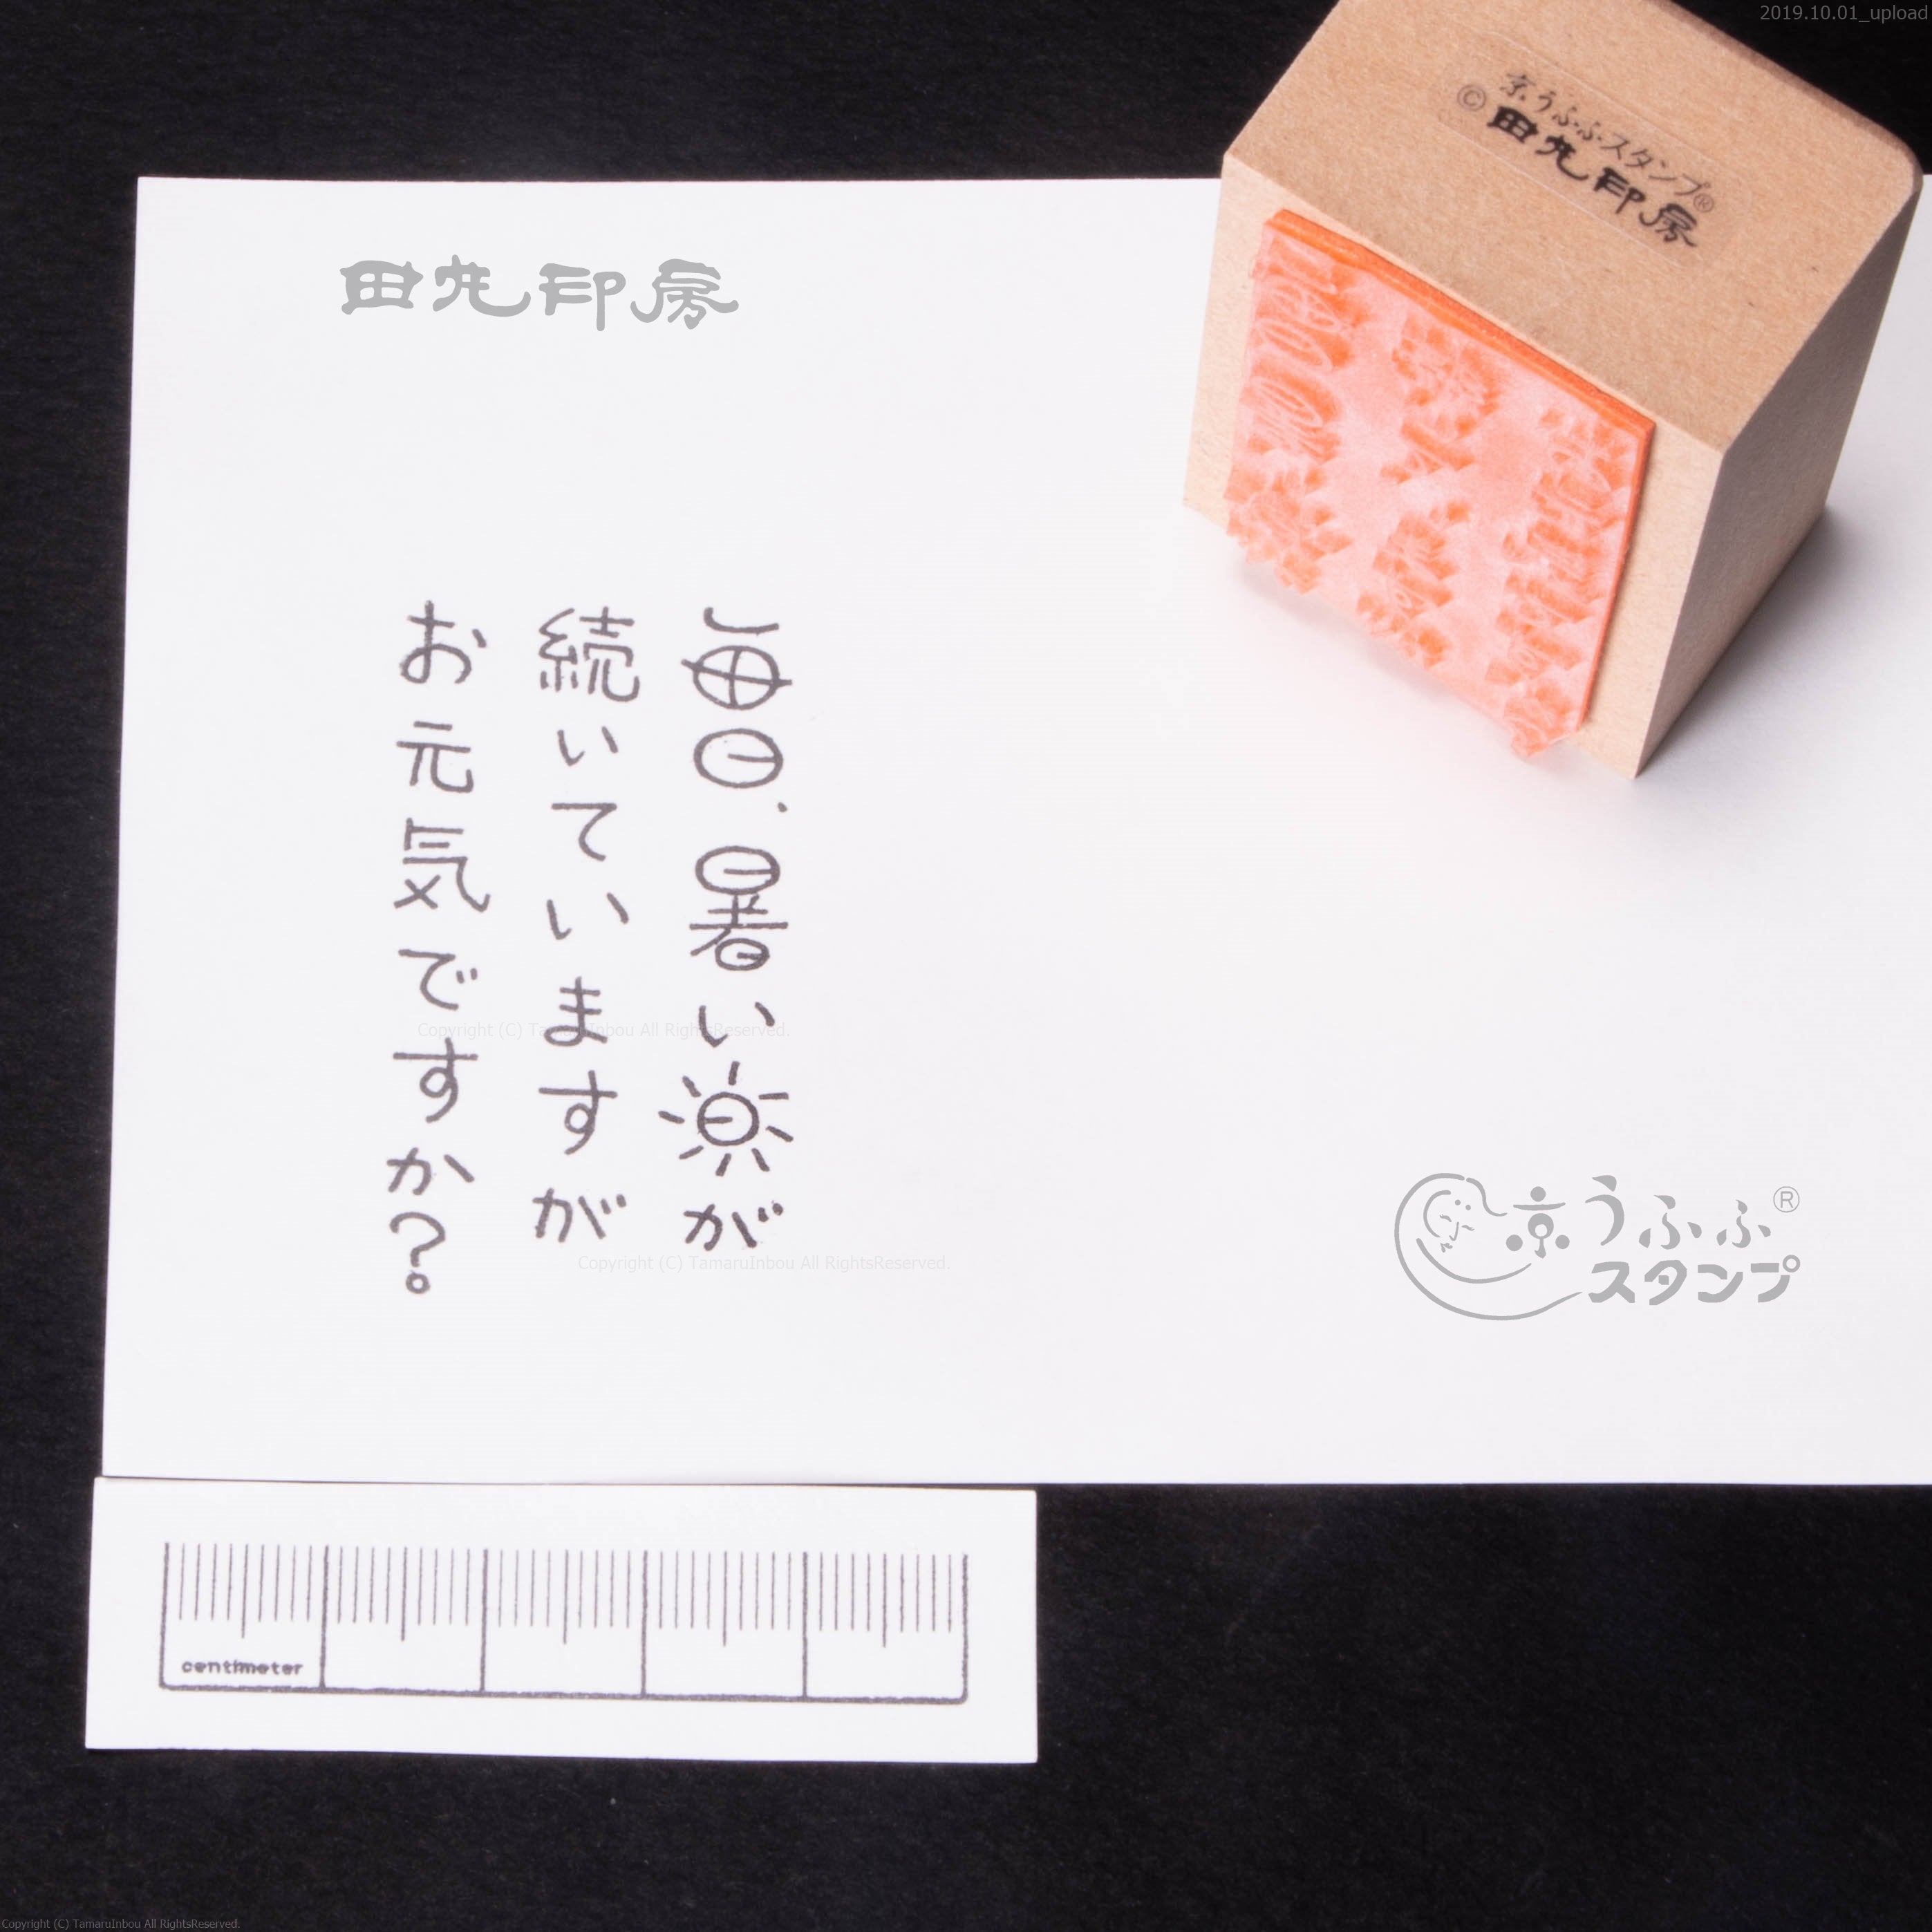 2019.10.01_upload
京うふふスタンプ®
©田丸印房
田丸印房
毎日、暑い日が
続いていますが
お元気ですか？
Copyright (C) TamaruInbou All RightsReserved.
Copyright (C) TamaruInbou All RightsReserved.
京うふふ®
スタンプ
centimeter
Copyright (C) TamaruInbou All RightsReserved.